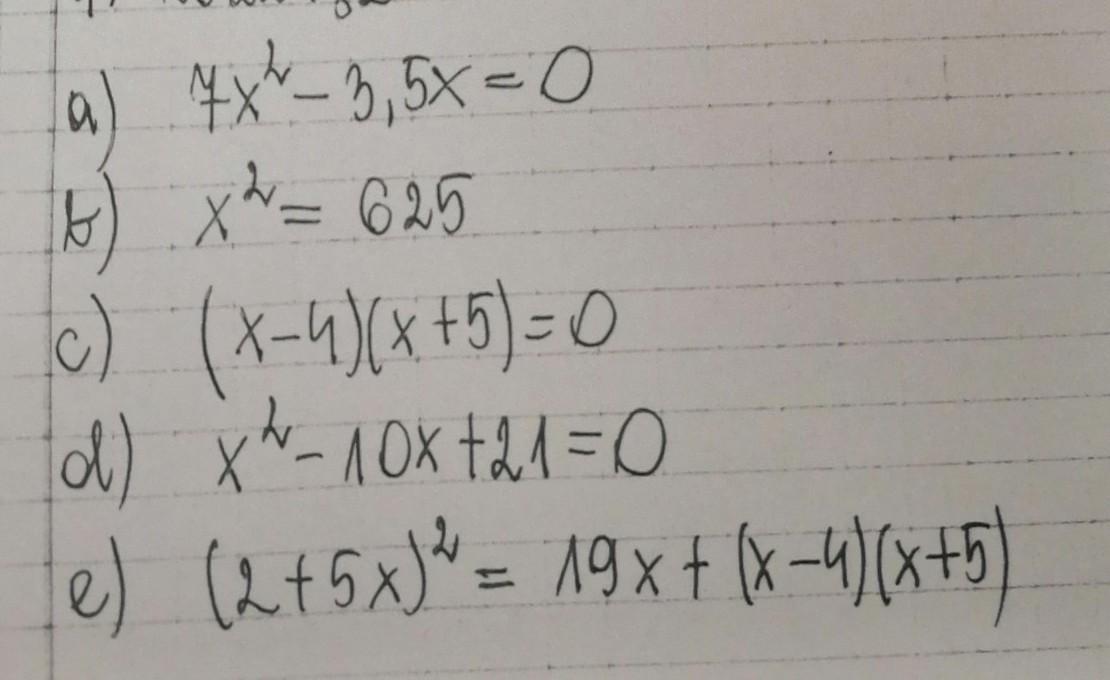 a) 7x² - 3,5x = 0
b) x² = 625
c) (x-4)(x+5) = 0
d) x² - 10x + 21 = 0
e) (2+5x)² = 19x + (x-4)(x+5)